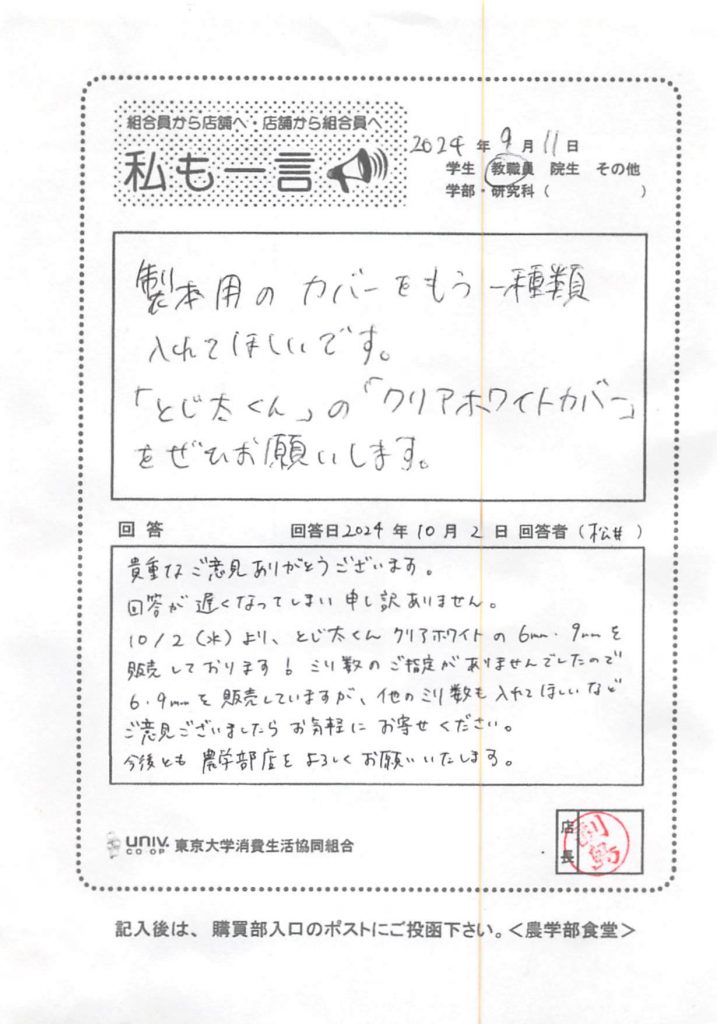 組合員から店舗へ・店舗から組合員へ
私も一言
2024 年 9 月 11 日
学生 教職員 院生 その他
学部・研究科（ ）
製本用の カバーをもう一種類
入れてほしいです。
「とじ太くん」の「クリアホワイトカバー」
をぜひお願いします。
回 答 回答日2024 年 10 月 2 日 回答者（松井）
貴重なご意見ありがとうございます。
回答が遅くなってしまい申し訳ありません。
10/2（水）より、とじ太くん クリアホワイトの 6mm・9mmを
販売しております！ミリ数のご指定がありませんでしたので
6・9mmを販売していますが、他のミリ数も入れてほしいなど
ご意見ございましたらお気軽にお寄せください。
今後とも農学部店をよろしくお願いいたします。
UNIV. CO-OP 東京大学消費生活協同組合
店長
記入後は、購買部入口のポストにご投函下さい。＜農学部食堂＞